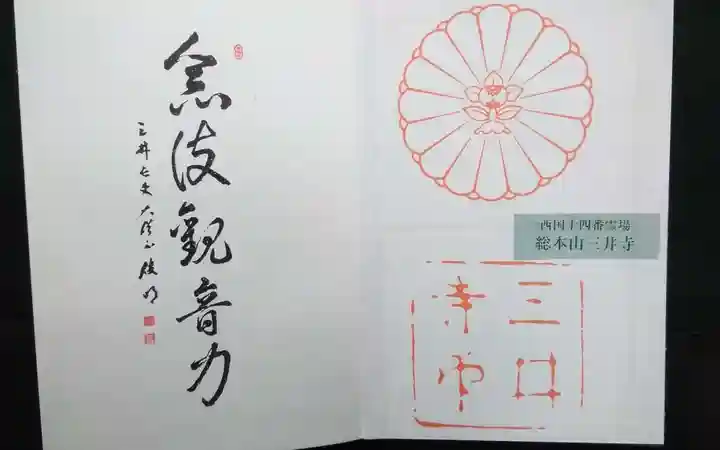 念彼觀音力
三井長吏 大僧正 俊明
西国十四番霊場
総本山三井寺
三井
寺印